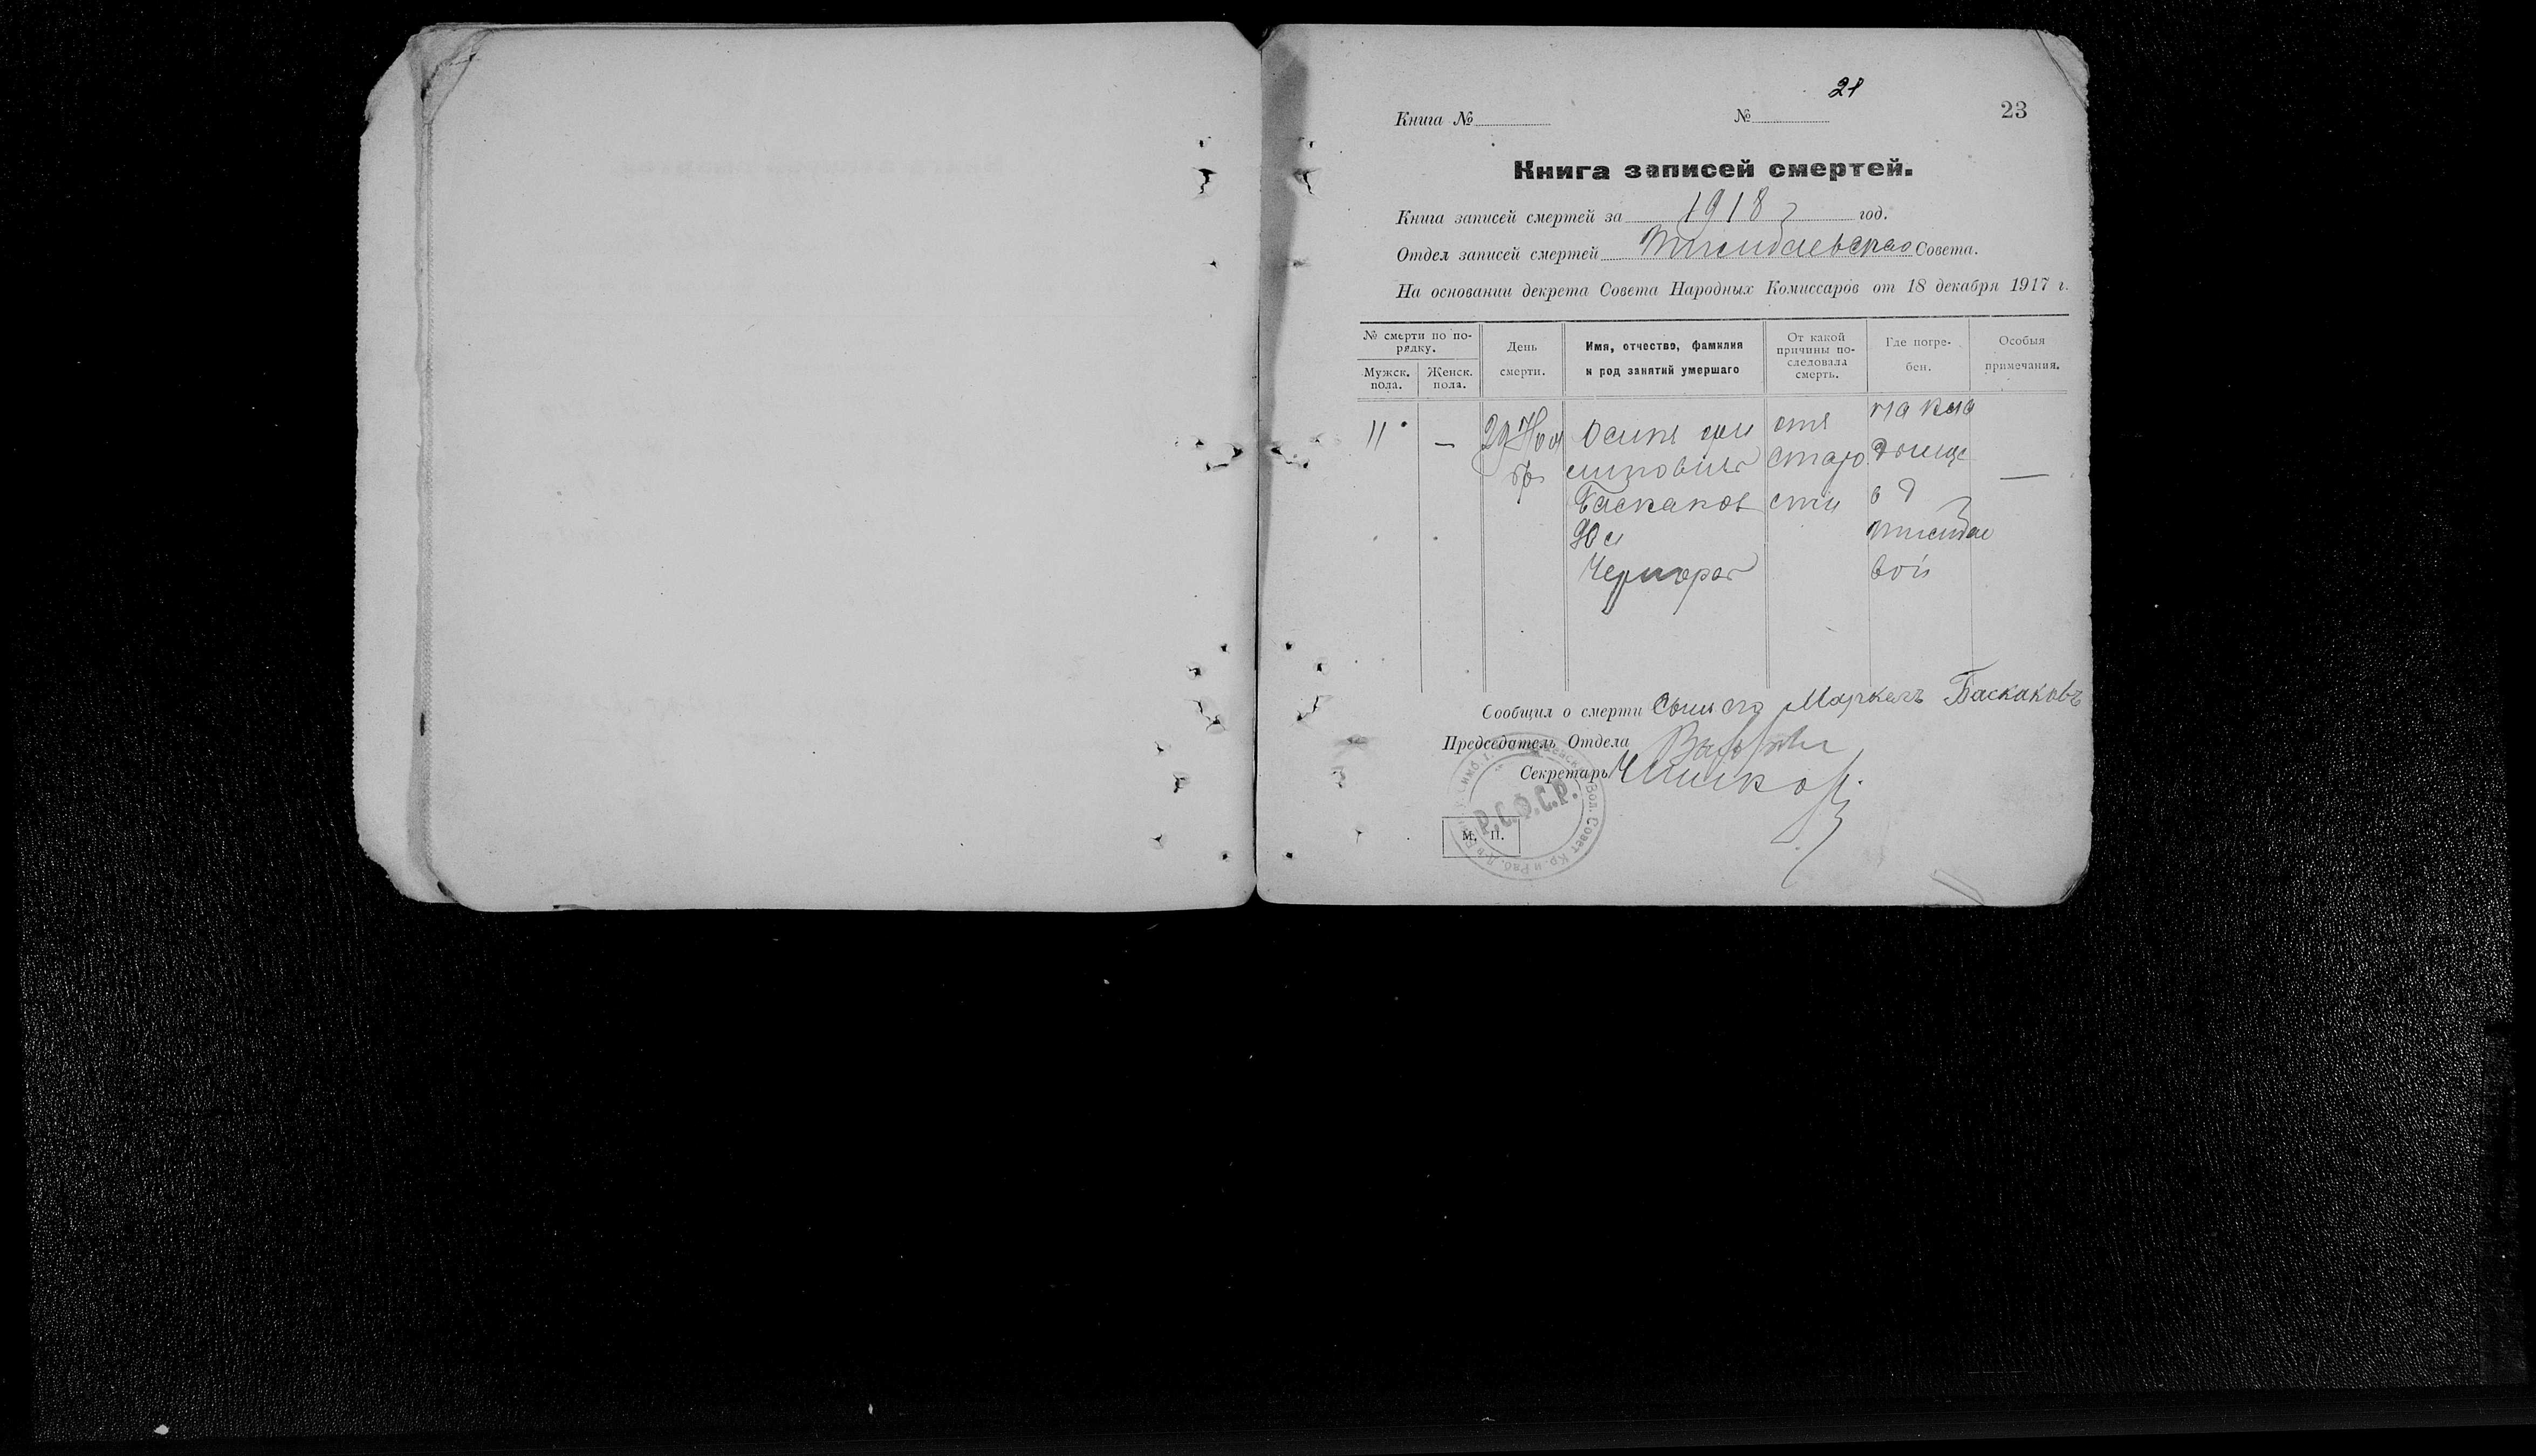 21
Книга № № 23
Книга записей смертей.
Книга записей смертей за 1918 г год.
Отдел записей смертей Тагайского Совета.
На основании декрета Совета Народных Комиссаров от 18 декабря 1917 г.
№ смерти по по-
рядку.
Мужск.
пола.
Женск.
пола.
День
смерти.
Имя, отчество, фамилия
и род занятий умершаго
От какой
причины по-
следовала
смерть.
Где погре-
бен.
Особыя
примечания.
11 — 29 Ноя
бр
Осипъ
Баскаков
90 л
отъ
старо
сти
на кла
дбище
в д
вой
—
Сообщил о смерти Сын его Маркелъ Баскаковъ
Председатель Отдела
Секретарь
Р.С.Ф.С.Р.
Вол. Совет Кр. и Раб. Д.
М. П.